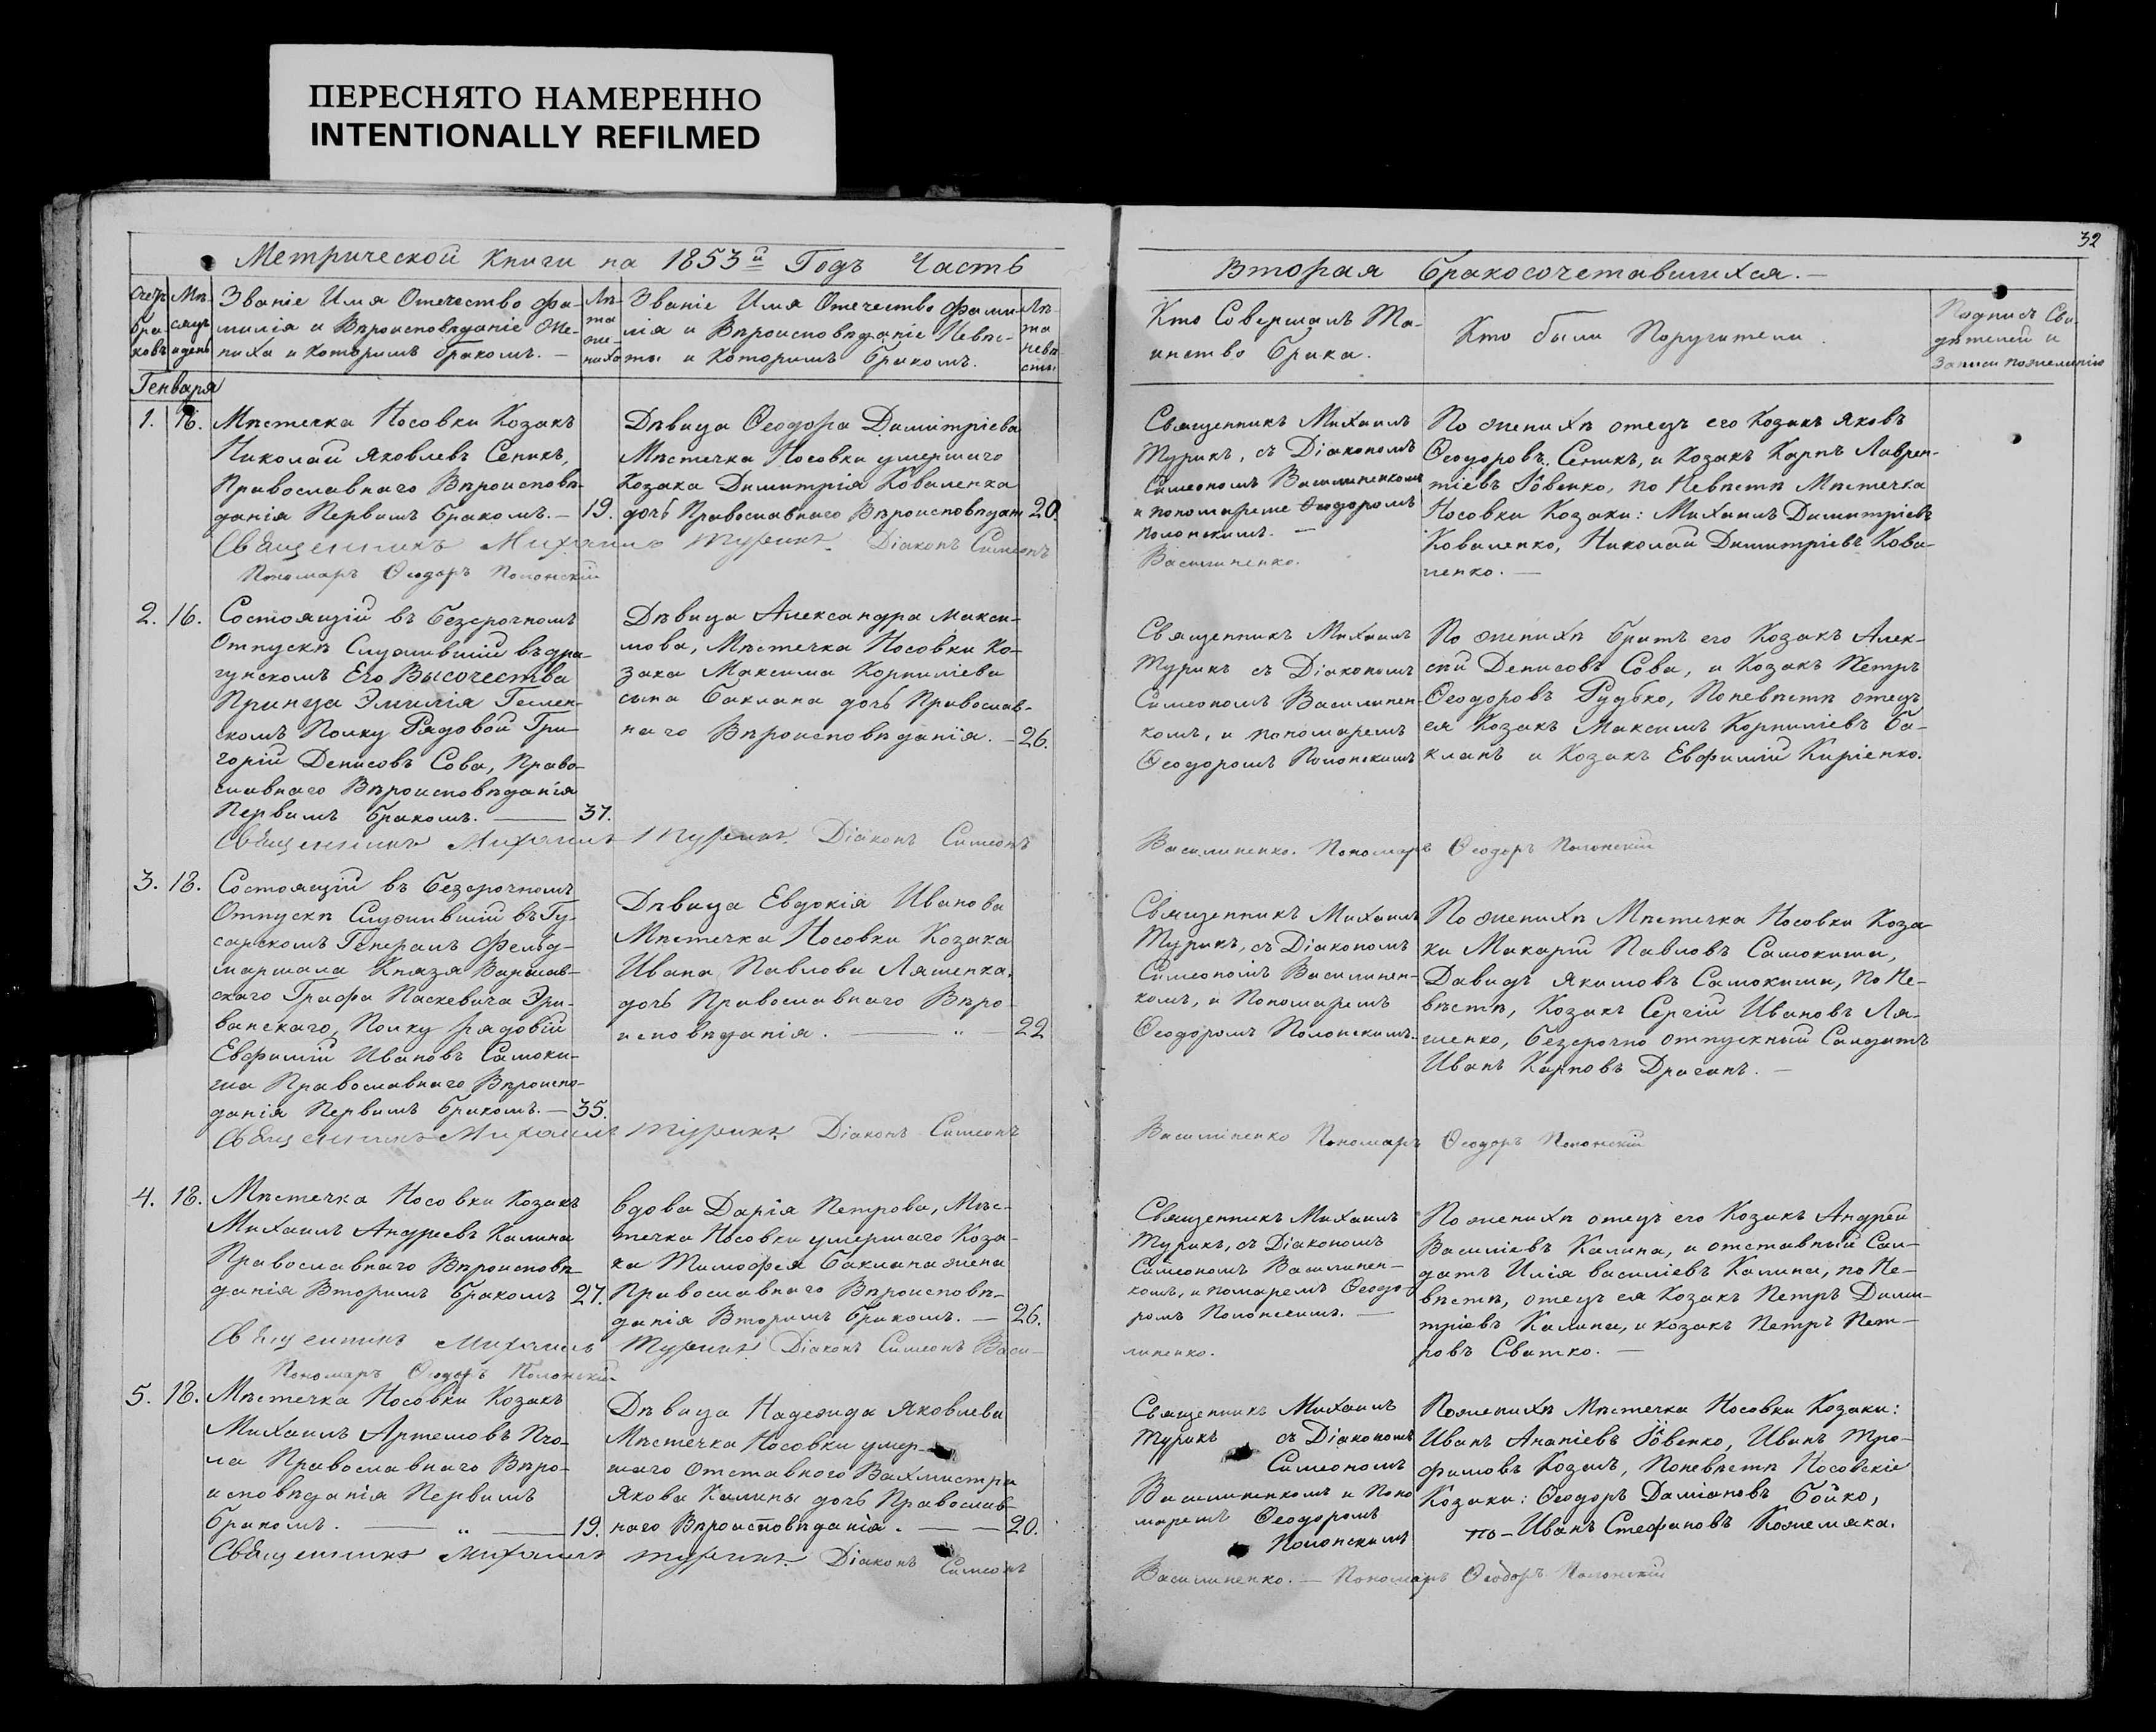 ПЕРЕСНЯТО НАМЕРЕННО
INTENTIONALLY REFILMED
32
Метрической Книги на 1853й Годъ Часть
Вторая Бракосочетавшихся.—
Счетъ браковъ
Мѣсяцъ и день
Званіе Имя Отечество Фа-
милія и Вѣроисповѣданіе Же-
ниха и Которимъ бракомъ.—
Лѣта жениха
Званіе Имя Отечество Фами-
лія и Вѣроисповѣданіе Невѣс-
ты и Которимъ бракомъ.
Лѣта невѣсты
Кто Совершалъ Та-
инство брака.
Кто были Поручители.
Подпись Сви-
дѣтелей и
Записи по желанію
Генваря
1. 16.
Мѣстечка Носовки Козакъ
Николай Яковлевъ Сеникъ,
Православнаго Вѣроисповѣ-
данія Первимъ бракомъ.— 19.
Дѣвица Ѳеодора Димитріева
Мѣстечка Носовки умершаго
Козака Димитрія Коваленка
дочь Православнаго Вѣроисповѣдан 20.
Священникъ Михаилъ
Турикъ, съ Діакономъ
Симеономъ Василиненкомъ
и пономареме Ѳеодоромъ
Полонскимъ.—
По женихѣ отецъ его Козакъ Яковъ
Ѳеодоровъ Сеникъ, и Козакъ Карпъ Лаврен-
тіевъ Іовенко, по Невѣстѣ Мѣстечка
Носовки Козаки: Михаилъ Димитріевъ
Коваленко, Николай Димитріевъ Кова-
ленко.—
Священникъ Михаилъ Турикъ. Діаконъ Симеонъ
Василиненко.
Пономаръ Ѳеодоръ Полонскій
2. 16.
Состоящій въ безсрочномъ
Отпускѣ Служившій въ дра-
гунскомъ Его Высочества
Принца Эмилія Гессен-
скомъ Полку Рядовой Гри-
горій Денисовъ Сова, Право-
славнаго Вѣроисповѣданія
Первимъ бракомъ. — 37.
Дѣвица Александра Макси-
мова, Мѣстечка Носовки Ко-
зака Максима Корниліева
сына Баклана дочь Православ-
наго Вѣроисповѣданія. — 26.
Священникъ Михаилъ
Турикъ съ Діакономъ
Симеономъ Василинен-
комъ, и пономаремъ
Ѳеодоромъ Полонскимъ
По женихѣ братъ его Козакъ Алек-
сѣй Денисовъ Сова, и Козакъ Петръ
Ѳеодоровъ Рудько, Поневѣстѣ отецъ
ея Козакъ Максимъ Корниліевъ Ба-
кланъ и Козакъ Евфимій Киріенко.
Священникъ Михаилъ Турикъ. Діаконъ Симеонъ
Василиненко. Пономаръ Ѳеодоръ Полонскій
3. 18.
Состоящій въ безсрочномъ
Отпускѣ Служившій въ Гу-
сарскомъ Генералъ Фельд-
маршала Князя Варшав-
скаго Графа Паскевича Эри-
ванскаго, Полку рядовій
Евфимій Ивановъ Самоки-
ша Православнаго Вѣроиспо-
данія Первимъ бракомъ.— 35.
Дѣвица Евдокія Иванова
Мѣстечка Носовки Козака
Ивана Павлова Ляшенка,
дочь Православнаго Вѣро-
исповѣданія. — „ — 22
Священникъ Михаилъ
Турикъ, съ Діакономъ
Симеономъ Василинен-
комъ, и Пономаремъ
Ѳеодоромъ Полонскимъ.
По женихѣ Мѣстечка Носовки Коза-
ки Макарій Павловъ Самокиша,
Давидъ Якимовъ Самокиша, По Не-
вѣстѣ, Козакъ Сергій Ивановъ Ля-
шенко, безсрочно отпускный Салдатъ
Иванъ Карповъ Драганъ.—
Священникъ Михаилъ Турикъ. Діаконъ Симеонъ
Василиненко Пономаръ Ѳеодоръ Полонскій
4. 18.
Мѣстечка Носовки Козакъ
Михаилъ Андреевъ Калина
Православнаго Вѣроисповѣ-
данія Вторимъ бракомъ 27.
вдова Дарія Петрова, Мѣс-
течка Носовки умершаго Коза-
ка Тимофея Баклана жена
Православнаго Вѣроисповѣ-
данія Вторимъ бракомъ.— 26.
Священникъ Михаилъ
Турикъ, съ Діакономъ
Симеономъ Василинен-
комъ, и помаремъ Ѳеодо-
ромъ Полонскимъ.—
По женихѣ отецъ его Козакъ Андрей
Василіевъ Калина, и отставный Сал-
датъ Илія василіевъ Калина, по Не-
вѣстѣ, отецъ ея Козакъ Петръ Дими-
тріевъ Калина, и козакъ Петръ Пет-
ровъ Сватко.—
Священникъ Михаилъ Турикъ Діаконъ Симеонъ Васи-
линенко.
Пономаръ Ѳеодоръ Полонскій
5. 18.
Мѣстечка Носовки Козакъ
Михаилъ Артемовъ Пчо-
ла Православнаго Вѣро-
исповѣданія Первимъ
бракомъ. — „ — 19.
Дѣвица Надежида Яковлева
Мѣстечка Носовки умер-
шаго Отставного Вахмистра
Якова Калины дочь Православ-
наго Вѣроисповѣданія. — — 20.
Священникъ Михаилъ
Турикъ съ Діакономъ
Симеономъ
Василиненкомъ и Поно
маремъ Ѳеодоромъ
Полонскимъ
Поженихѣ Мѣстечка Носовки Козаки:
Иванъ Ананіевъ Іовенко, Иванъ Тро-
фимовъ Козелъ, Поневѣстѣ Носовскіе
Козаки: Ѳеодоръ Даміановъ Бойко,
то — Иванъ Стефановъ Кожемяка.
Священникъ Михаилъ Турикъ. Діаконъ Симеонъ
Василиненко. — Пономаръ Ѳеодоръ Полонскій